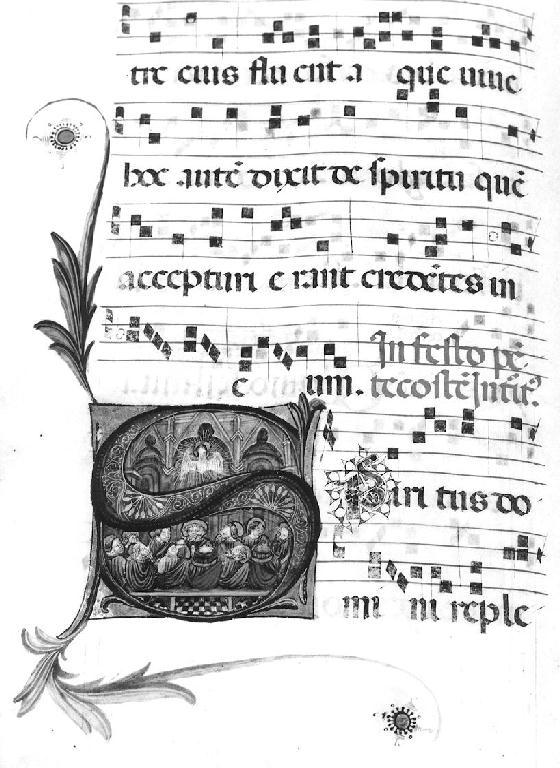 tre eius flu ent a que uiue
hoc autē dixit de spiritu quē
accepturi e rant credētes in
e um. In festo pē
tecostē Introit.
Spiri tus do
mi ni reple